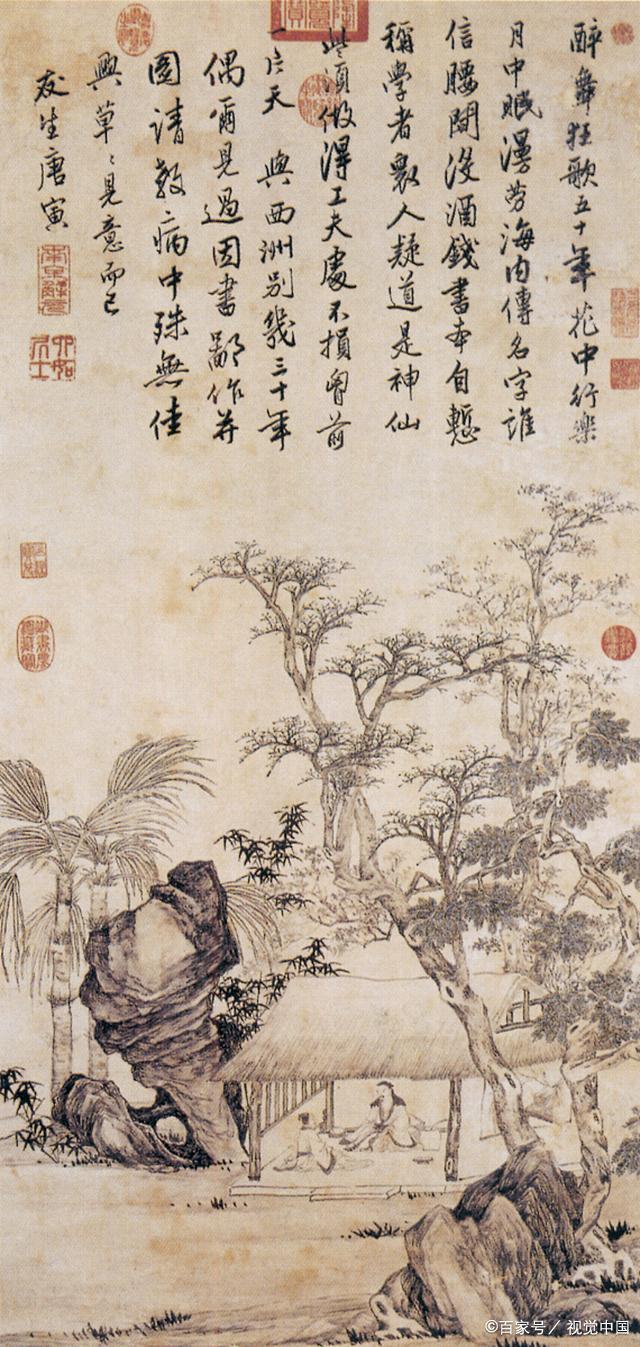 醉舞狂歌五十年花中行樂
月中眠漫勞海内傳名字誰
信腰間沒酒錢書本自慙
稱學者衆人疑道是神仙
些須做得工夫處不損胸前
一片天 與西洲別幾三十年
偶爾見過因書鄙作并
圖請教病中殊無佳
興草〻見意而已
友生唐寅
南京解元
六如居士
©百家号／视觉中国